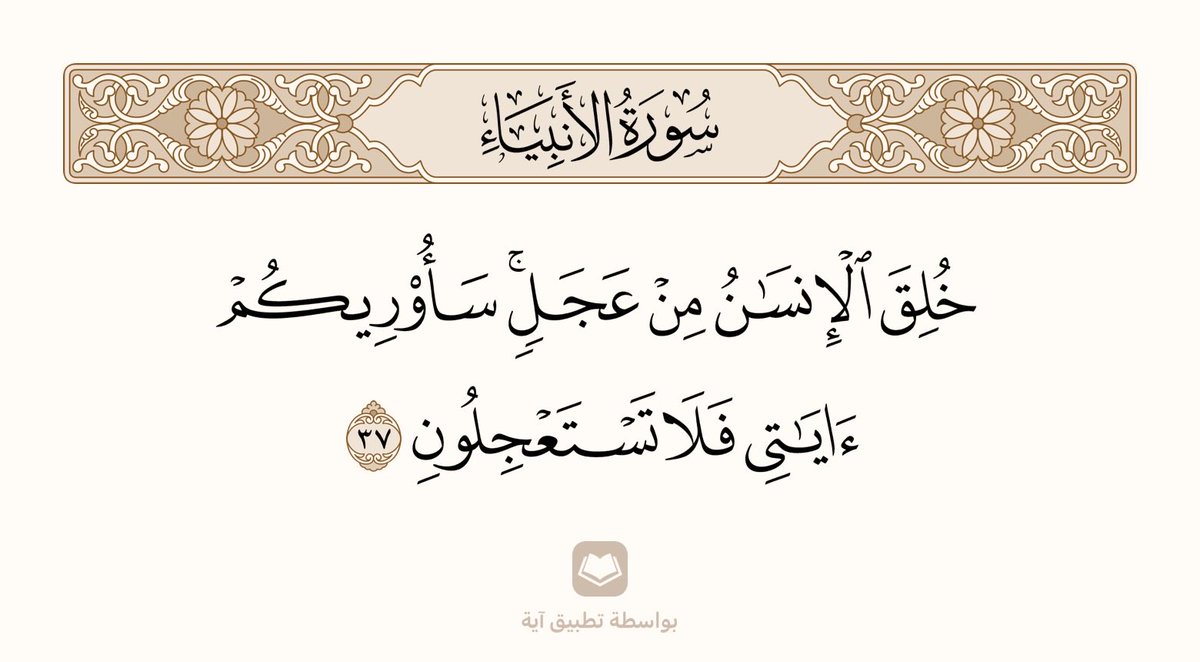 سُورَةُ الأَنبِيَاءِ
خُلِقَ ٱلۡإِنسَٰنُ مِنۡ عَجَلٖۚ سَأُوْرِيكُمۡ
ءَايَٰتِي فَلَا تَسۡتَعۡجِلُونِ ٣٧
بواسطة تطبيق آية